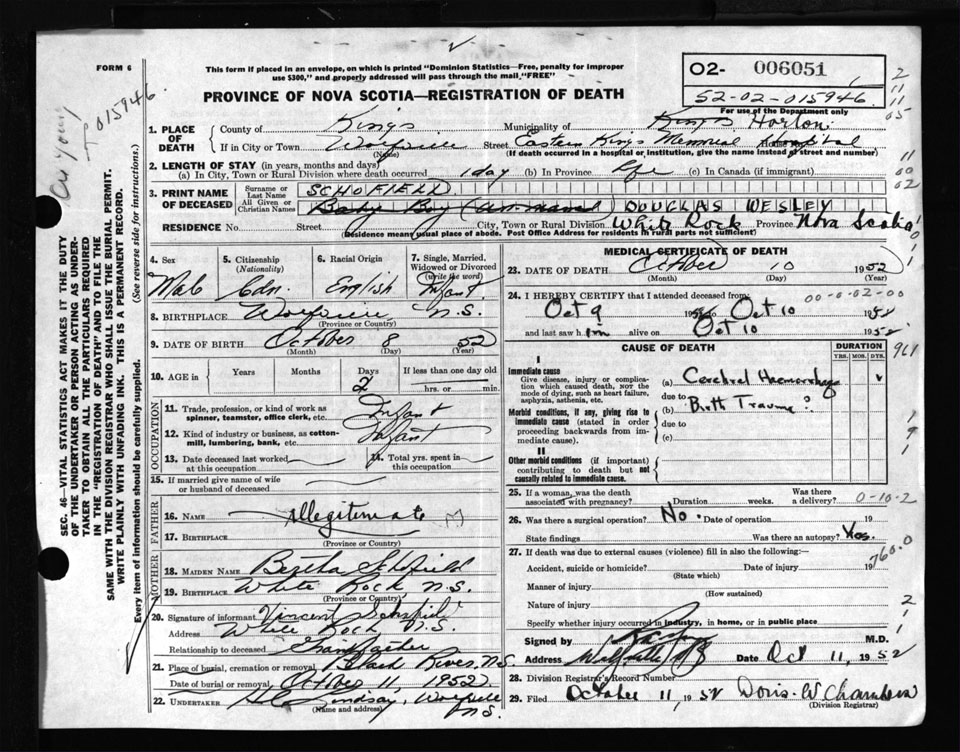 FORM 6
This form if placed in an envelope, on which is printed "Dominion Statistics—Free, penalty for improper
use $300," and properly addressed will pass through the mail "FREE"
PROVINCE OF NOVA SCOTIA—REGISTRATION OF DEATH
O2- 006051
52-02-015946
For use of the Department only
015946
SEC. 46—VITAL STATISTICS ACT MAKES IT THE DUTY
OF THE UNDERTAKER OR PERSON ACTING AS UNDER-
TAKER TO OBTAIN ALL THE PARTICULARS REQUIRED
IN THE "REGISTRATION OF DEATH" AND TO FILE THE
SAME WITH THE DIVISION REGISTRAR WHO SHALL ISSUE THE BURIAL PERMIT.
WRITE PLAINLY WITH UNFADING INK. THIS IS A PERMANENT RECORD.
(See reverse side for instructions.)
Every item of information should be carefully supplied.
1. PLACE OF DEATH
County of Kings Municipality of Kings Horton
If in City or Town Wolfville Street Eastern Kings Memorial Hospital House No.
(Name) (If death occurred in a hospital or institution, give the name instead of street and number)
2. LENGTH OF STAY (in years, months and days)
(a) In City, Town or Rural Division where death occurred 1 day (b) In Province life (c) In Canada (if immigrant)
3. PRINT NAME OF DECEASED
Surname or Last Name SCHOFIELD
All Given or Christian Names Baby Boy (Unnamed) DOUGLAS WESLEY
RESIDENCE No. Street City, Town or Rural Division White Rock Province Nova Scotia
(Residence means usual place of abode. Post Office Address for residents in rural parts not sufficient)
4. Sex 5. Citizenship (Nationality) 6. Racial Origin 7. Single, Married, Widowed or Divorced (write the word)
Male Cdn. English Infant
8. BIRTHPLACE Wolfville N.S.
(Province or Country)
9. DATE OF BIRTH October 8 52
(Month) (Day) (Year)
10. AGE in Years Months Days If less than one day old
2 hrs. or min.
OCCUPATION
11. Trade, profession, or kind of work as spinner, teamster, office clerk, etc. Infant
12. Kind of industry or business, as cotton-mill, lumbering, bank, etc. Infant
13. Date deceased last worked at this occupation 14. Total yrs. spent in this occupation
15. If married give name of wife or husband of deceased
FATHER
16. NAME illegitimate
17. BIRTHPLACE
(Province or Country)
MOTHER
18. MAIDEN NAME Bertha Schofield
19. BIRTHPLACE White Rock, N.S.
(Province or Country)
20. Signature of informant Vincent Schofield
Address White Rock N.S.
Relationship to deceased Grandfather
21. Place of burial, cremation or removal Black River, N.S.
Date of burial or removal, October 11, 1952.
22. UNDERTAKER Lindsay, Wolfville N.S.
(Name and address)
MEDICAL CERTIFICATE OF DEATH
23. DATE OF DEATH October 10 1952
(Month) (Day) (Year)
24. I HEREBY CERTIFY that I attended deceased from 00-0-02-00
Oct 9 1952 to Oct 10 1952
and last saw him alive on Oct 10 1952
CAUSE OF DEATH DURATION
YRS. MOS. DYS.
961
I
Immediate cause
Give disease, injury or complication which caused death, NOT the mode of dying, such as heart failure, asphyxia, asthenia, etc.
(a) Cerebral Haemorrhage
due to
Morbid conditions, if any, giving rise to immediate cause (stated in order proceeding backwards from immediate cause).
(b) Birth Trauma?
due to
(c)
II
Other morbid conditions (if important) contributing to death but not causally related to immediate cause.
25. If a woman, was the death associated with pregnancy? Duration weeks. Was there a delivery? 0-10-2
26. Was there a surgical operation? No. Date of operation 19
State findings Was there an autopsy? Yes.
27. If death was due to external causes (violence) fill in also the following:—
760.0
Accident, suicide or homicide? Date of injury 19
(State which)
Manner of injury
(How sustained)
Nature of injury
Specify whether injury occurred in industry, in home, or in public place
Signed by M.D.
Address Wolfville NS Date Oct 11, 1952
28. Division Registrar's Record Number
29. Filed October 11, 1952 Doris W Chambers
(Division Registrar)